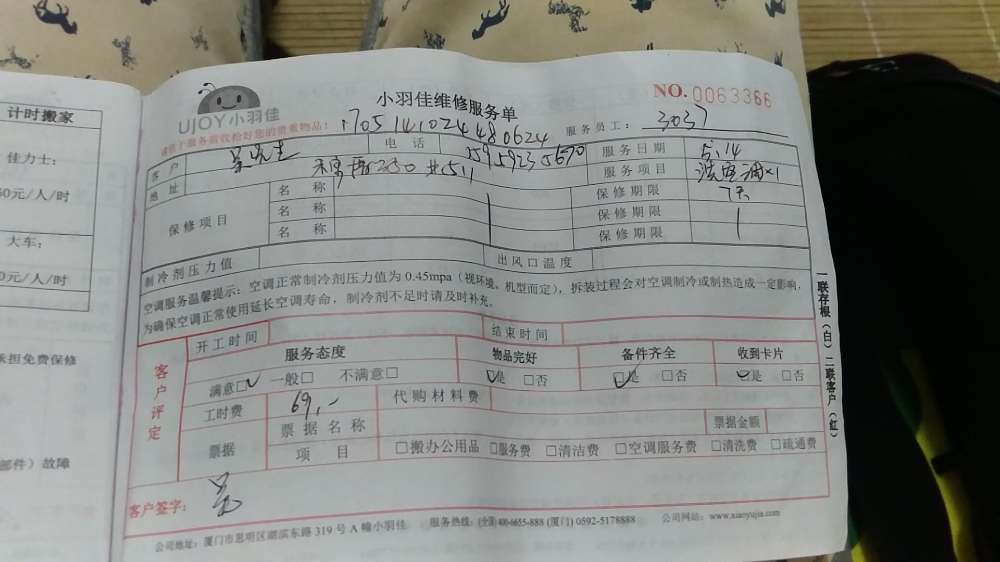 计时搬家
佳力士：
60元/人/时
大车：
0元/人/时
承担免费保修
部件）故障
UJOY小羽佳
小羽佳维修服务单
NO.0063366
请您于服务前收检好您的贵重物品：
17051410244480624
服务员工：3037
客户 吴先生 电话 15959235670 服务日期 5.14
地址 禾寓 服务项目
保修项目
名称 保修期限 7天
名称 保修期限
名称 保修期限
制冷剂压力值 出风口温度
空调服务温馨提示：空调正常制冷剂压力值为 0.45mpa（视环境、机型而定），拆装过程会对空调制冷或制热造成一定影响，
为确保空调正常使用延长空调寿命，制冷剂不足时请及时补充。
开工时间 结束时间
客户评定
服务态度 物品完好 备件齐全 收到卡片
满意□✓ 一般□ 不满意□ ☑是 □否 ☑是 □否 ☑是 □否
工时费 69,- 代购材料费
票据 票据名称 票据金额
项目 □搬办公用品 □服务费 □清洁费 □空调服务费 □清洗费 □疏通费
客户签字： 吴
一联存根（白）二联客户（红）
公司地址：厦门市思明区湖滨东路 319 号 A 幢小羽佳 服务热线：(全国) 400-6655-888 (厦门) 0592-5178888 公司网站：www.xiaoyujia.com